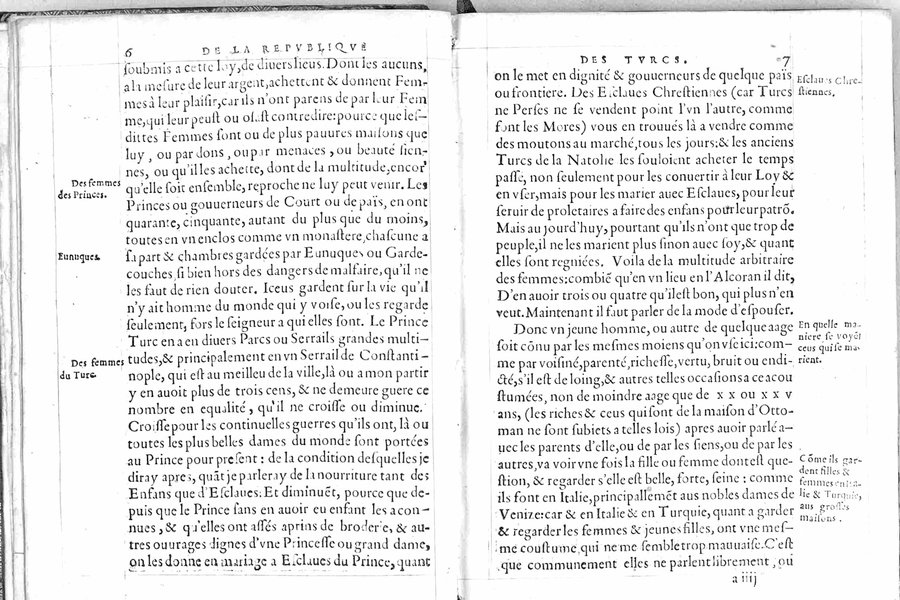 6
DE LA REPVBLIQVE
ſoubmis a cette loy, de diuers lieus. Dont les aucuns,
a la meſure de leur argent, achettent & donnent Fem-
mes à leur plaiſir, car ils n'ont parens de par leur Fem
me, qui leur peuſt ou oſaſt contredire: pource que leſ-
dittes Femmes ſont ou de plus pauures maiſons que
luy, ou par dons, ou par menaces, ou beauté ſien-
nes, ou qu'il les achette, dont de la multitude, encor'
qu'elle ſoit enſemble, reproche ne luy peut venir. Les
Princes ou gouuerneurs de Court ou de païs, en ont
quarante, cinquante, autant du plus que du moins,
toutes en vn enclos comme vn monaſtere, chaſcune a
ſa part & chambres gardées par Eunuques ou Garde-
couches ſi bien hors des dangers de malfaire, qu'il ne
les faut de rien douter. Iceus gardent ſur la vie qu'il
n'y ait homme du monde qui y voiſe, ou les regarde
ſeulement, fors le ſeigneur a qui elles ſont. Le Prince
Turc en a en diuers Parcs ou Serrails grandes multi-
tudes, & principalement en vn Serrail de Conſtanti-
nople, qui eſt au meilleu de la ville, là ou a mon partir
y en auoit plus de trois cens, & ne demeure guere ce
nombre en equalité, qu'il ne croiſſe ou diminue.
Croiſſe pour les continuelles guerres qu'ils ont, là ou
toutes les plus belles dames du monde ſont portées
au Prince pour preſent: de la condition deſquelles je
diray apres, quãt je parleray de la nourriture tant des
Enfans que d'Eſclaues. Et diminuët, pource que de-
puis que le Prince ſans en auoir eu enfant les a con-
nues, & qu'elles ont aſſés aprins de broderie, & au-
tres ouurages dignes d'vne Princeſſe ou grand dame,
on les donne en mariage a Eſclaues du Prince, quant
Des femmes
des Princes.
Eunuques.
Des femmes
du Turc.
DES TVRCS.
7
on le met en dignité & gouuerneurs de quelque païs
ou frontiere. Des Eſclaues Chreſtiennes (car Turcs
ne Perſes ne ſe vendent point l'vn l'autre, comme
font les Mores) vous en trouués là a vendre comme
des moutons au marché, tous les jours: & les anciens
Turcs de la Natolie les ſouloient acheter le temps
paſſé, non ſeulement pour les conuertir à leur Loy &
en vſer, mais pour les marier auec Eſclaues, pour leur
ſeruir de proletaires a faire des enfans pour leur patrõ.
Mais au jourd'huy, pourtant qu'ils n'ont que trop de
peuple, il ne les marient plus ſinon auec ſoy, & quant
elles ſont regniées. Voila de la multitude arbitraire
des femmes: combiẽ qu'en vn lieu en l'Alcoran il dit,
D'en auoir trois ou quatre qu'il eſt bon, qui plus n'en
veut. Maintenant il faut parler de la mode d'eſpouſer.
Donc vn jeune homme, ou autre de quelque aage
ſoit cõnu par les meſmes moiens qu'on vſe ici: com-
me par voiſiné, parenté, richeſſe, vertu, bruit ou endi-
cté, s'il eſt de loing, & autres telles occaſions a ce acou
ſtumées, non de moindre aage que de x x ou x x v
ans, (les riches & ceus qui ſont de la maiſon d'Otto-
man ne ſont ſubiets a telles lois) apres auoir parlé a-
uec les parents d'elle, ou de par les ſiens, ou de par les
autres, va voir vne fois la fille ou femme dont eſt que-
ſtion, & regarder s'elle eſt belle, forte, ſeine: comme
ils font en Italie, principallemẽt aus nobles dames de
Venize: car & en Italie & en Turquie, quant a garder
& regarder les femmes & jeunes filles, ont vne meſ-
me couſtume, qui ne me ſemble trop mauuaiſe. C'eſt
que communement elles ne parlent librement, ou
a iiij
Eſclaues Chre-
ſtiennes.
En quelle ma-
niere ſe voyẽt
ceus qui ſe ma-
rient.
Cõme ils gar-
dent filles &
femmes en Ita-
lie & Turquie,
aus groſſes
maiſons.